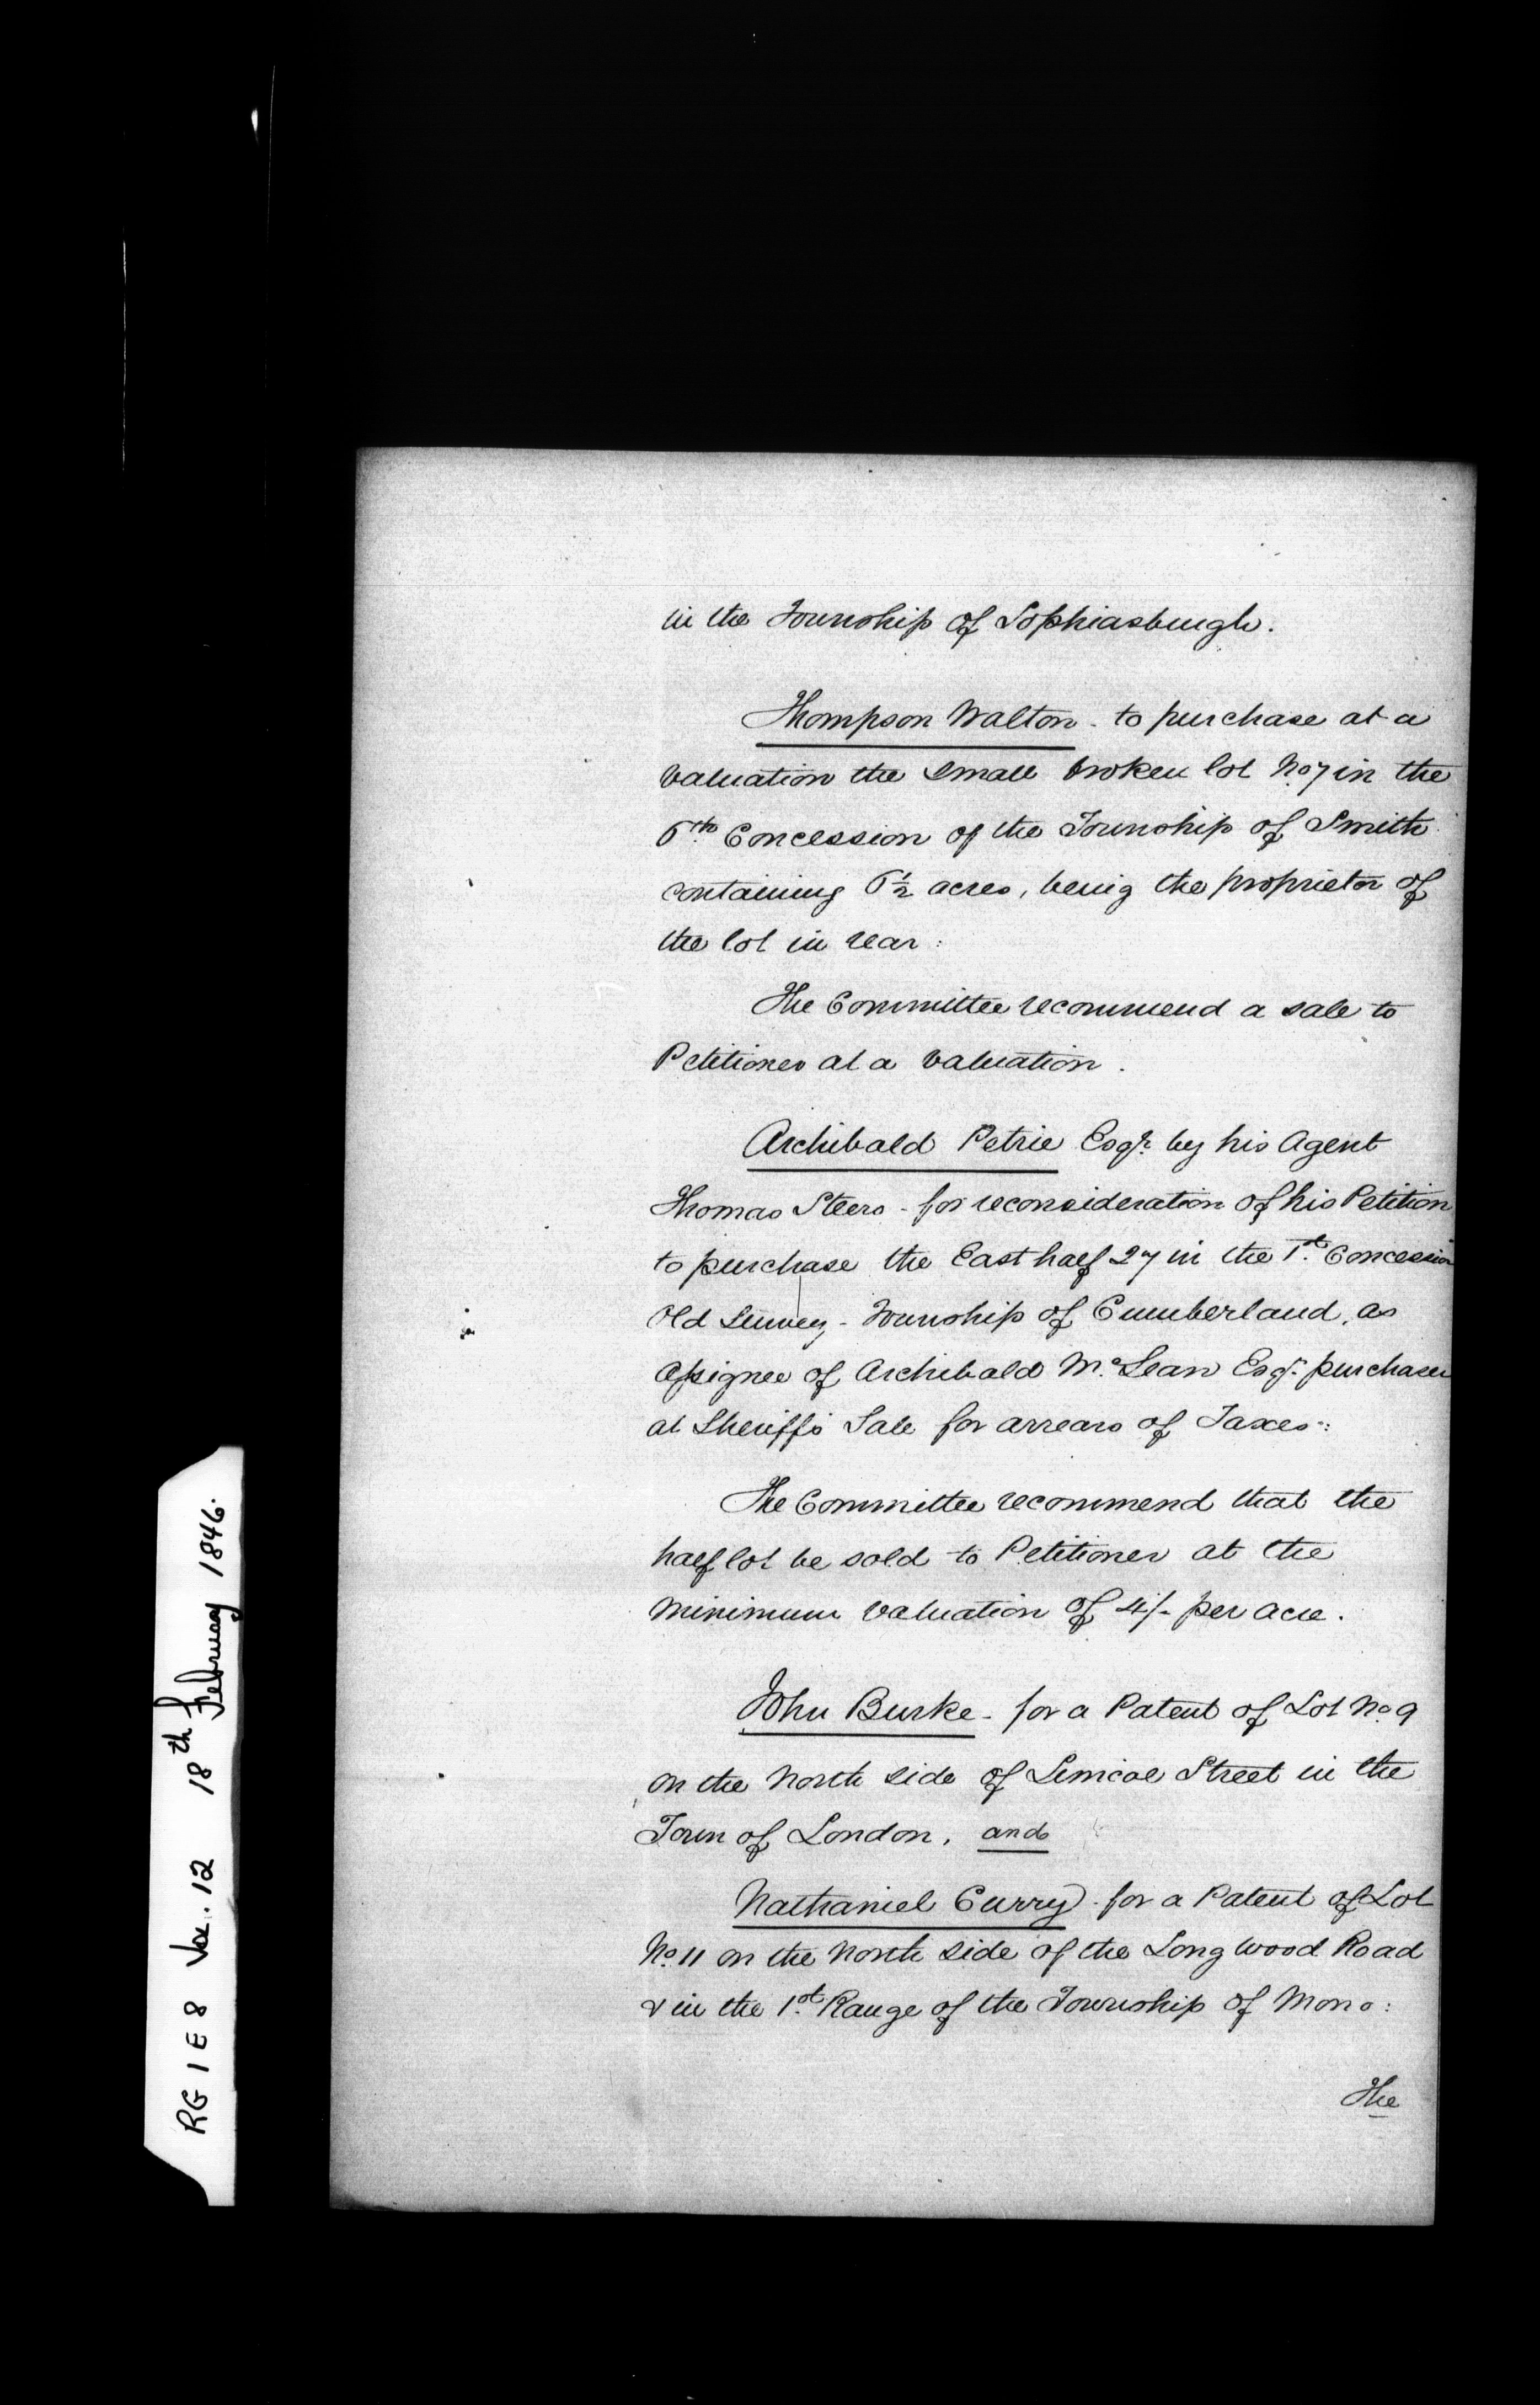 in the Township of Sophiasburgh.
Thompson Walton - to purchase at a
valuation the small broken lot No. 7 in the
6th Concession of the Township of Smith
containing 6½ acres, being the proprietor of
the lot in rear:
The Committee recommend a sale to
Petitioner at a valuation.
Archibald Petrie Esqr. by his Agent
Thomas Steers - for reconsideration of his Petition
to purchase the East half 27 in the 1st. Concession
Old Survey - Township of Cumberland, as
Assignee of Archibald McLean Esqr. purchaser
at Sheriffs Sale for arrears of Taxes:
The Committee recommend that the
half lot be sold to Petitioner at the
minimum valuation of 4/- per acre.
John Burke - for a Patent of Lot No. 9
on the North side of Simcoe Street in the
Town of London, and
Nathaniel Curry - for a Patent of Lot
No. 11 on the North side of the Longwood Road
& in the 1st. Range of the Township of Mono:
The
RG 1 E 8 Vol. 12 18th February 1846.